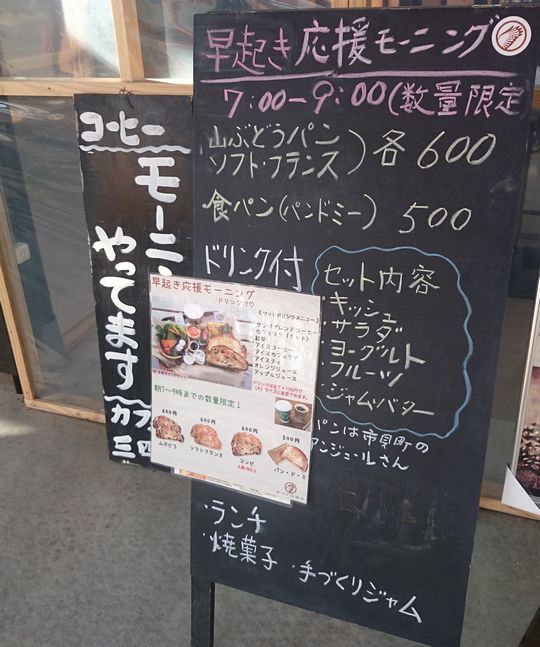 早起き応援モーニング
7:00-9:00(数量限定
山ぶどうパン
ソフト・フランス
)各600
食パン(パンドミー) 500
ドリンク付
セット内容
・キッシュ
・サラダ
・ヨーグルト
・フルーツ
・ジャム・バター
パンは市貝町の
アンジュールさん
・ランチ
・焼菓子 ・手づくりジャム
コーヒー
モーニ
やってます
カフ
三
早起き応援モーニング
ドリンク付♡
《セットドリンクメニュー》
・アイスコーヒー
・アイスカフェラテ
・アイスティ
・オレンジジュース
・アップルジュース
朝7～9時までの数量限定!
600円
山ぶどう
600円
ソフトフランス
600円
コンビ
人気NO.1
500円
パン・ド・ミ